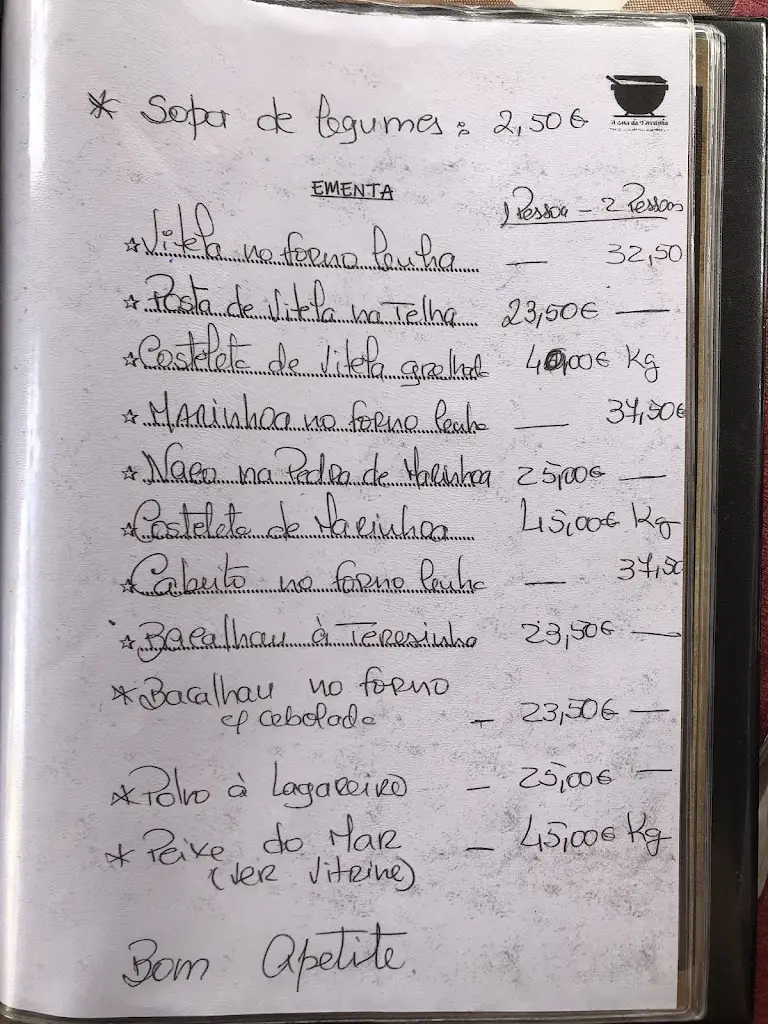 * Sopa de legumes : 2,50€
EMENTA
1 Pessoa – 2 Pessoas
☆ Vitela no forno lenha — 32,50
☆ Posta de Vitela na Telha 23,50€ —
☆ Costeleta de Vitela grelhad 40,00€ Kg
☆ Marinhoa no forno lenha — 37,50€
☆ Naco na Pedra de Marinhoa 25,00€ —
☆ Costeleta de Marinhoa 45,00€ Kg
☆ Cabrito no forno lenha — 37,50
☆ Bacalhau à Teresinha 23,50€ —
* Bacalhau no forno
c/ cebolada – 23,50€ —
* Polvo à Lagareiro – 25,00€ —
* Peixe do Mar – 45,00€ Kg
(Ver Vitrine)
Bom Apetite